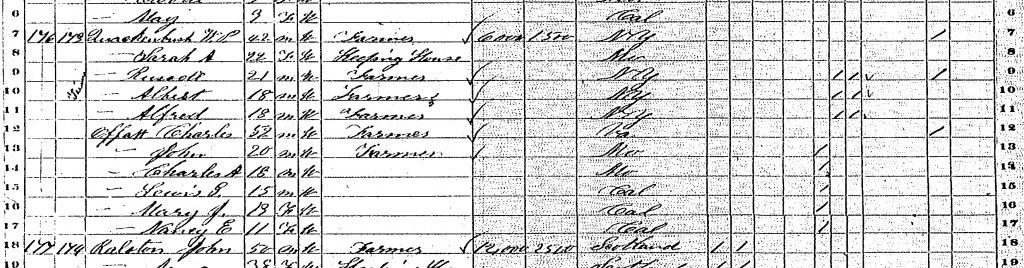 6 — May 9 F W Cal 6
7 176 173 Quackenbush W. P. 42 m W Farmer 6000 1500 N Y 1 7
8 — Sarah A 22 F W Keeping House Mo 8
9 — Russell 21 m W Farmer N Y 1 1 1 9
10 Twins — Albert 18 m W Farmer N Y 1 1 10
11 — Alfred 18 m W Farmer N Y 1 1 11
12 Effatt Charles 52 m W Farmer Va 1 12
13 — John 20 m W Farmer Mo 1 13
14 — Charles A 18 m W Mo 1 14
15 — Lewis E. 15 m W Cal 1 15
16 — Mary J. 13 F W Cal 1 16
17 — Nancy E 11 F W Cal 1 17
18 177 174 Ralston John 50 m W Farmer 12,000 2500 Scotland 1 1 18
19 38 F W 1 1 19